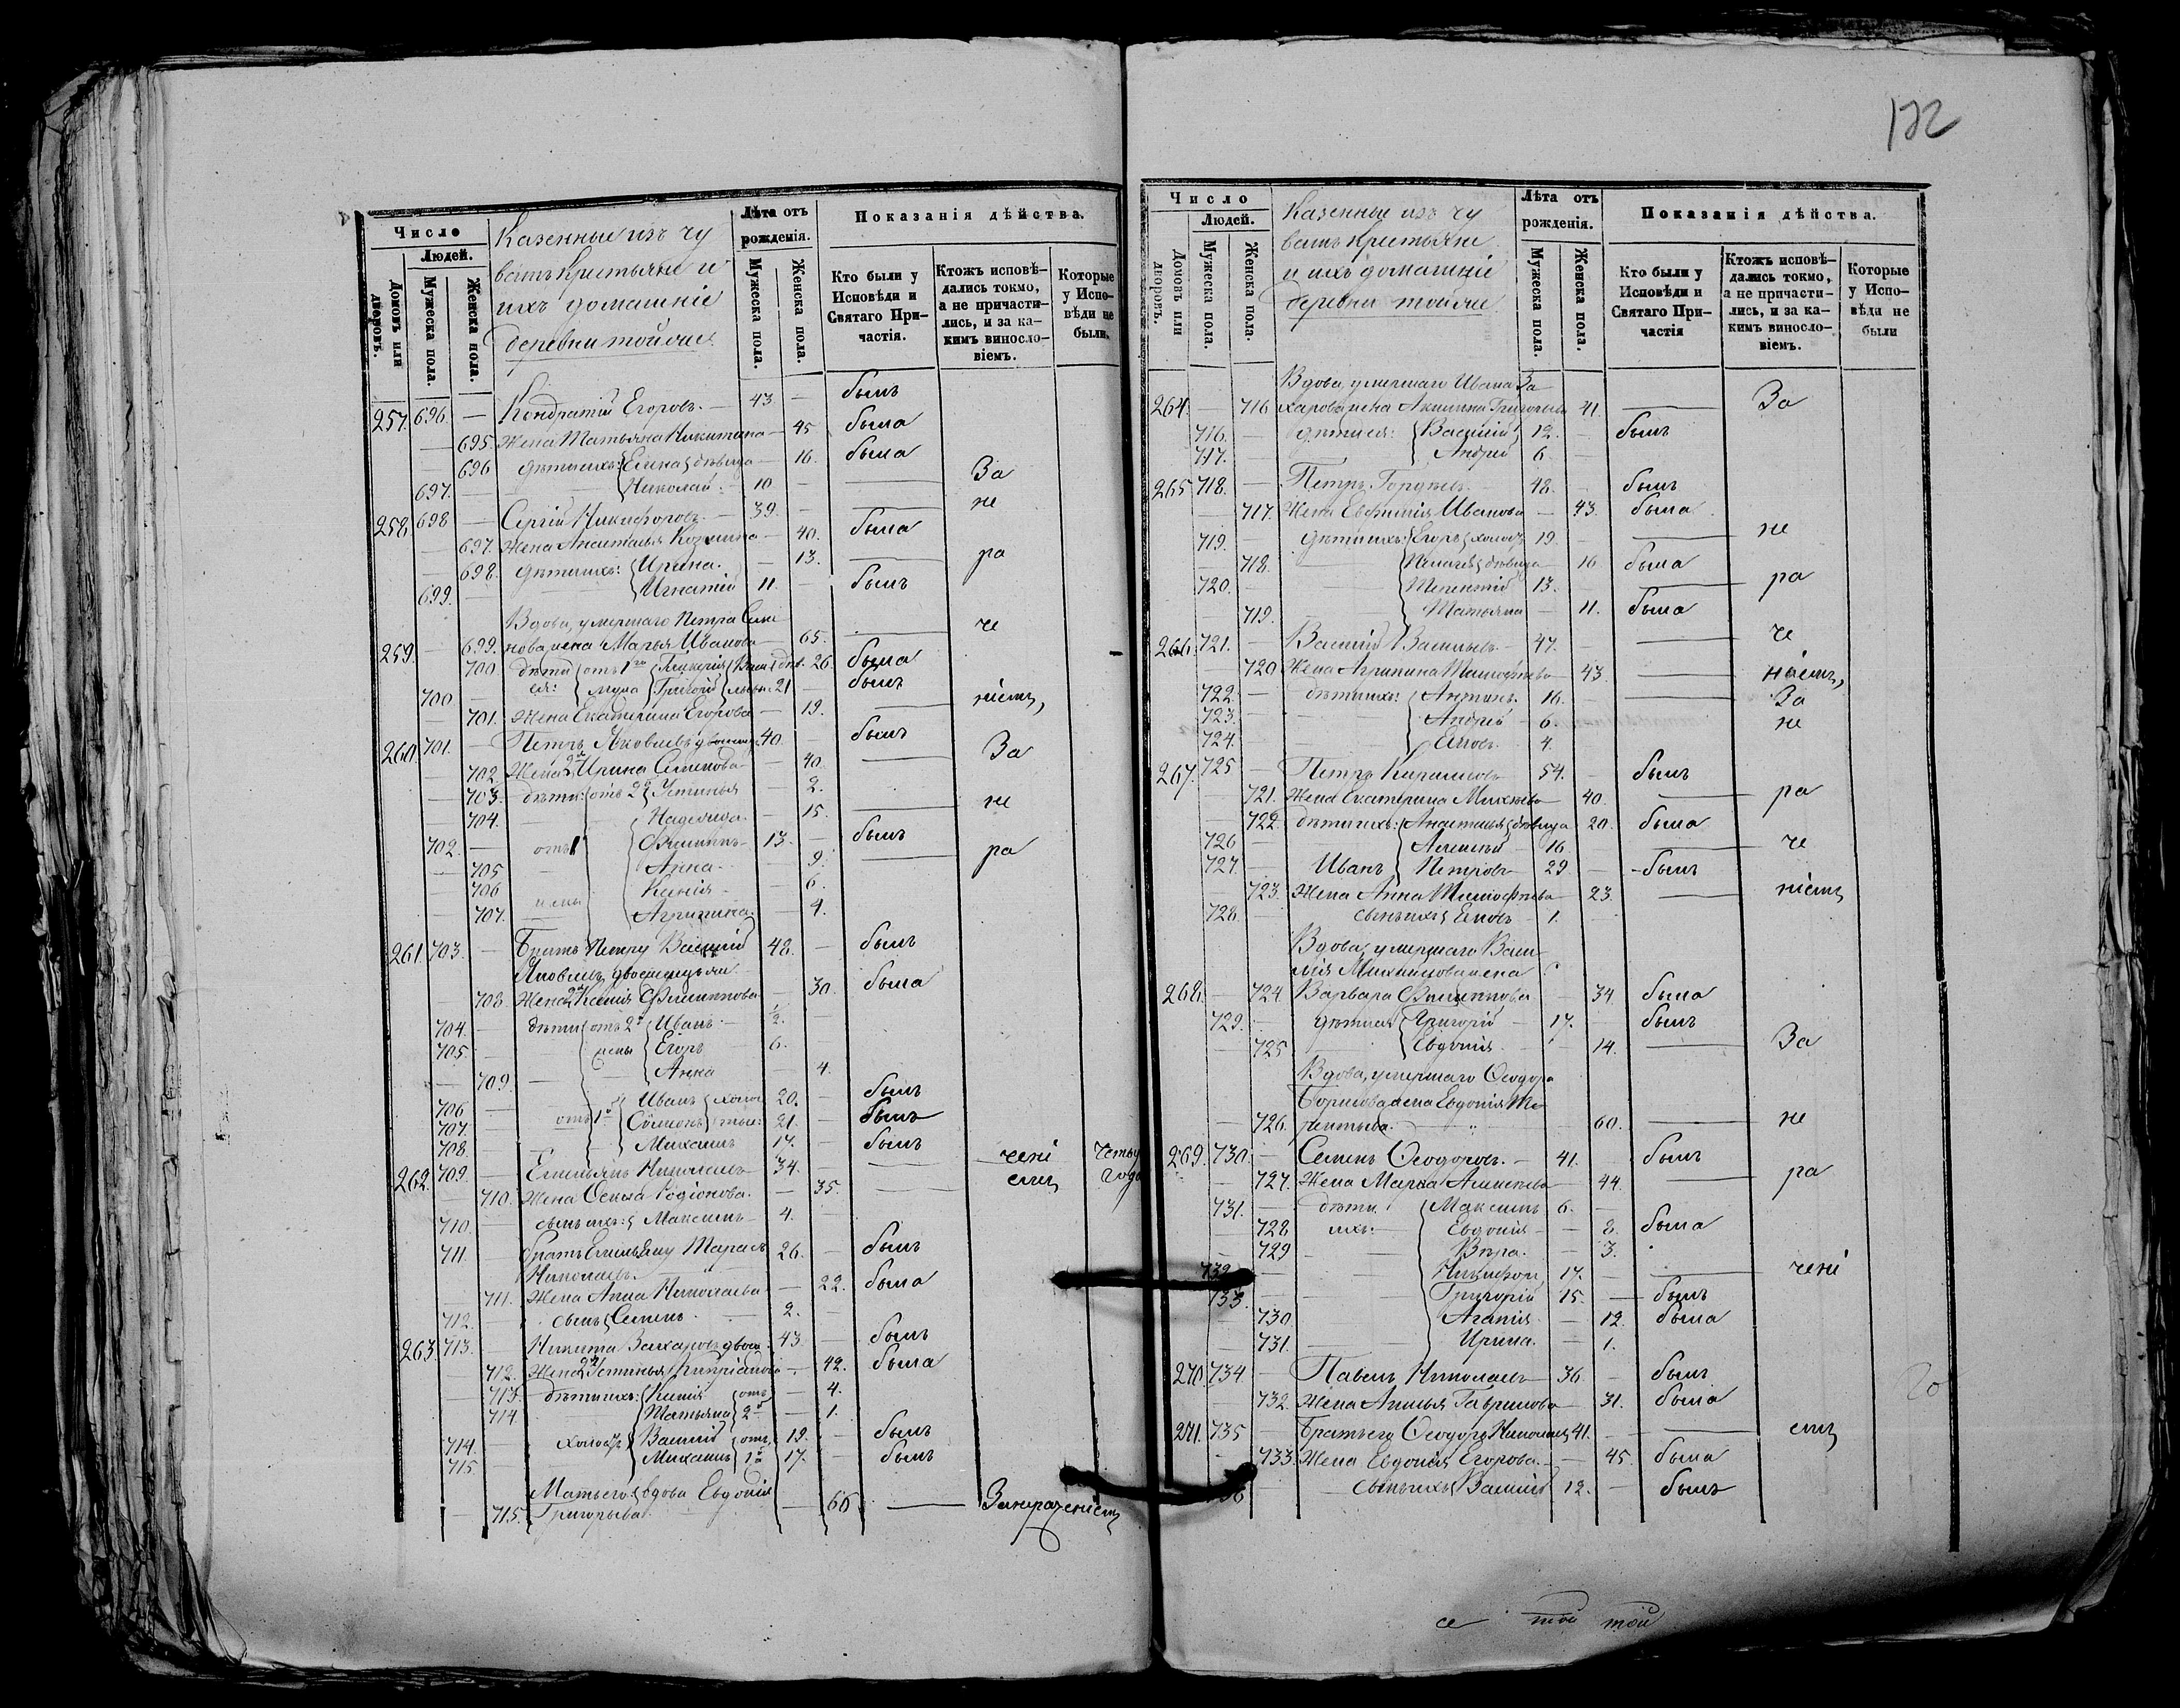 172
Число
Людей.
Домовъ или дворовъ.
Мужеска пола.
Женска пола.
Казенные изъ чу
вашъ крестьяне и
ихъ домашніе
деревни тойже
Лѣта отъ
рожденія.
Мужеска пола.
Женска пола.
Показанія дѣйства.
Кто были у
Исповѣди и
Святаго При-
частія.
Ктожъ исповѣ-
дались токмо,
а не причасти-
лись, и за ка-
кимъ виносло-
віемъ.
Которые
у Испо-
вѣди не
были.
257. 696. — Кондратій Егоровъ. — 43. — былъ
— 695. Жена Татьяна Никитина — 45 была
— 696 дѣти ихъ: Елена дѣвица — 16. была
697. — Николай. 10 — — За
258. 698 — Сергій Никифоровъ. — 39. — — не
— 697. Жена Анастасья Козмина — 40. была
— 698. дѣти ихъ: Ирина. — 13. — ра
699. — Игнатій 11. — былъ
Вдова, умершаго Петра Семе
259. — 699. нова жена Марья Иванова — 65. — че
— 700 дѣти отъ 1го Гликерія дѣв. 26. была
700 — ея: мужа Григорій 21 — былъ
— 701. Жена Екатерина Егорова — 19. — ніемъ,
260. 701. — Петръ Яковлевъ 40. — былъ
— 702. Жена 2я Ирина Семенова — 40. — За
— 703. дѣти: отъ 2й Устинья — 2.
— 704. — Надежда. — 15. — не
702. — отъ 1й Филиппъ 13. — былъ
— 705 — Анна. 9. — ра
— 706 жены Ксенія — 6.
— 707. — Агрипина. — 4.
261. 703. — Братъ Петру Василій 48. — былъ
Яковлевъ
— 708. Жена 2я Ксенія Филиппова — 30. была
704. — дѣти отъ 2й Иванъ 1/2. —
705. — жены Егоръ 6. —
— 709 — Анна — 4.
706 — Иванъ 20. — былъ
707. — отъ 1й Симеонъ 21. — былъ
708. — Михаилъ 17. — былъ
262. 709. — Емельянъ Николаевъ 34. — — чені
— 710. Жена Фекла Родіонова. — 35. — емъ
года
710. — сынъ ихъ: Максимъ 4. —
711. братъ Емельяну Тарасъ 26. — былъ
Николаевъ.
— 711. Жена Анна Николаева — 22. была
712. — сынъ Семенъ. — 2.
263. 713. — Никита Захаровъ 43 — былъ
— 712. Жена 2я Устинья Кипріанова — 42. была
— 713. дѣти ихъ: Ксенія отъ — 4.
714 Татьяна 2й — 1.
714. — Василій отъ 19. — былъ
715. — Михаилъ 1й 17. — былъ
Мать его вдова Евдокія
— 715. Григорьева. — 66 — За нераченіемъ
Число
Людей.
Домовъ или дворовъ.
Мужеска пола.
Женска пола.
Казенные изъ чу
вашъ крестьяне
и ихъ домашніе
деревни тойже
Лѣта отъ
рожденія.
Мужеска пола.
Женска пола.
Показанія дѣйства.
Кто были у
Исповѣди и
Святаго При-
частія
Ктожъ исповѣ-
дались токмо,
а не причасти-
лись, и за ка-
кимъ виносло-
віемъ.
Которые
у Испо-
вѣди не
были
Вдова, умершаго Ивана За
264. — 716 харова жена Акилина Григорьева 41. — За
716. — дѣти ея: Василій 12. — былъ
717. — Андрей 6. —
265 718. — Петръ Гордѣевъ. 48. — былъ
— 717. Жена Евфимія Иванова — 43. была
719. — дѣти ихъ: Егоръ 19. — — не
718. — Пелагея дѣвица — 16 была
720. — Терентій 13. — — ра
719. Татьяна — 11. была
266. 721. — Василій Васильевъ. 47. — — че
— 720 Жена Агрипина Тимофѣева 43 — ніемъ,
722. — дѣти ихъ: Антонъ. 16. — За
723. — Андрей 6. — не
724. — Емов. 4.
267. 725 — Петръ Кириловъ 54. — былъ
— 721. Жена Екатерина Михѣева — 40. — ра
— 722. дѣти ихъ: Анастасья дѣвица 20. была
726 — Алексѣй 16. — че
727. — Иванъ Петровъ 29. — былъ
723. Жена Анна Тимофѣева — 23. — ніемъ
728. сынъ ихъ 1.
Вдова, умершаго Васи
лія Михайлова жена
268. — 724. Варвара Филиппова — 34. была
729. — дѣти ея Григорій — 17. — былъ
— 725 Евдокія — 14. — За
Вдова, умершаго Феодора
Борисова жена Евдокія Те
— 726. рентьева. — 60. — не
269. 730. — Семенъ Феодоровъ. — 41. былъ
— 727. Жена Марѳа Алексѣева — 44. — ра
731. — дѣти Максимъ 6. —
— 728 ихъ: Евдокія — 8. была
— 729 — Вѣра. — 3.
732. — Никифоръ, 17. — — чені
733. — Григорій 15. — былъ
— 730 Агапія — 12. была
— 731. — Ирина. — 1.
270. 734. — Павелъ Николаевъ 36. — былъ
732. Жена Анисья Гаврилова 31. была
271. 735 — Братъ его Феодоръ Николаевъ 41. — — емъ
— 733. Жена Евдокія Егорова. — 45. была
736 — сынъ ихъ Василій 12. — былъ
се той той